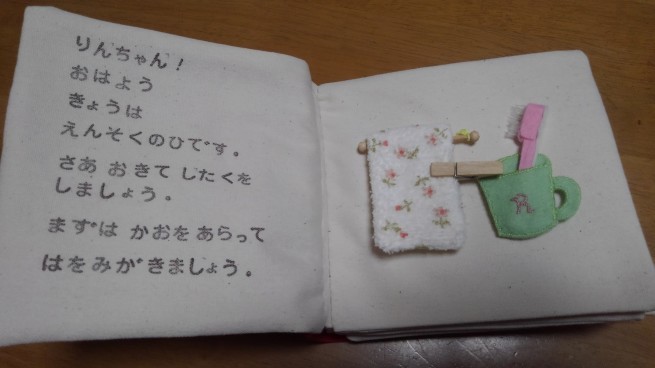 りんちゃん！
おはよう
きょうは
えんそくのひです。
さあ おきて したくを
しましょう。
まずは かおを あらって
はをみがきましょう。